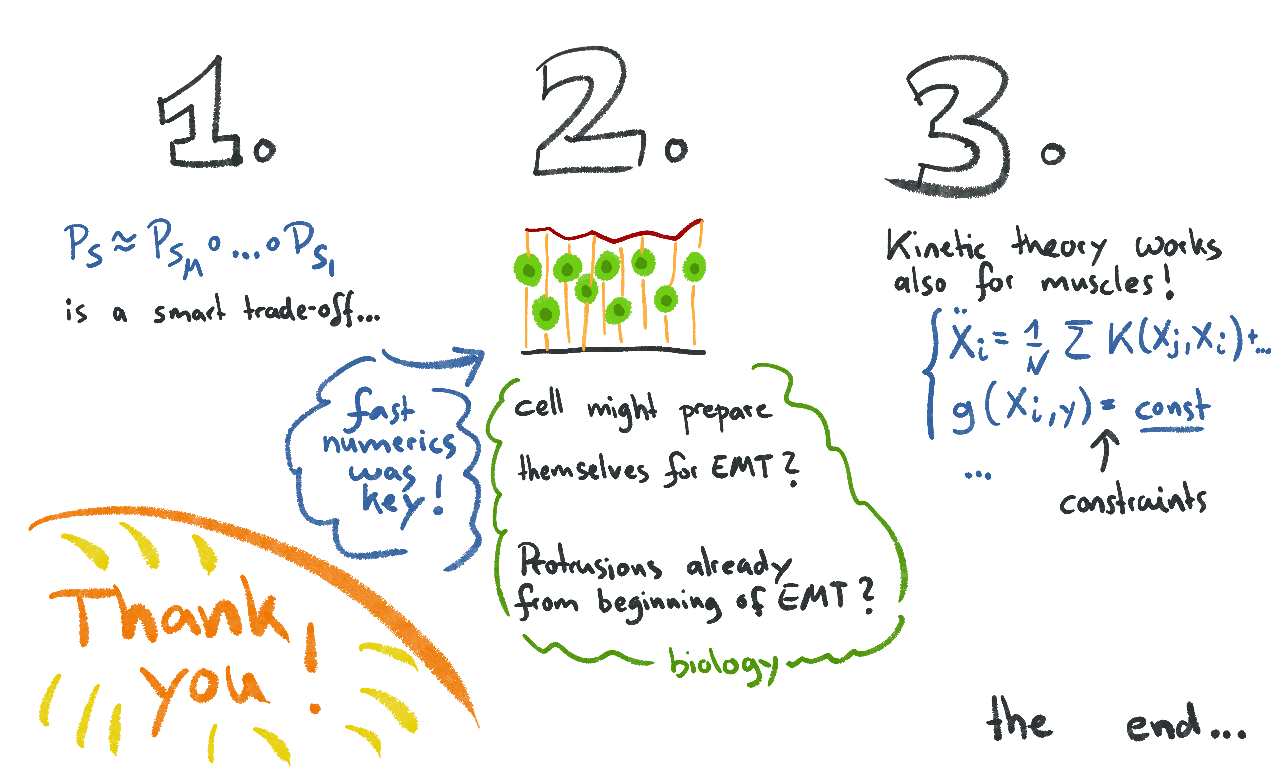 1.
P_S ≈ P_{S_M} ∘ ... ∘ P_{S_1}
is a smart trade-off...
fast
numerics
was
key!
Thank
you!
2.
cell might prepare
themselves for EMT?
Protrusions already
from beginning of EMT?
biology
3.
Kinetic theory works
also for muscles!
Ẍ_i = 1/N Σ K(X_j, X_i) + ...
g(X_i, y) = const
...
constraints
the end...